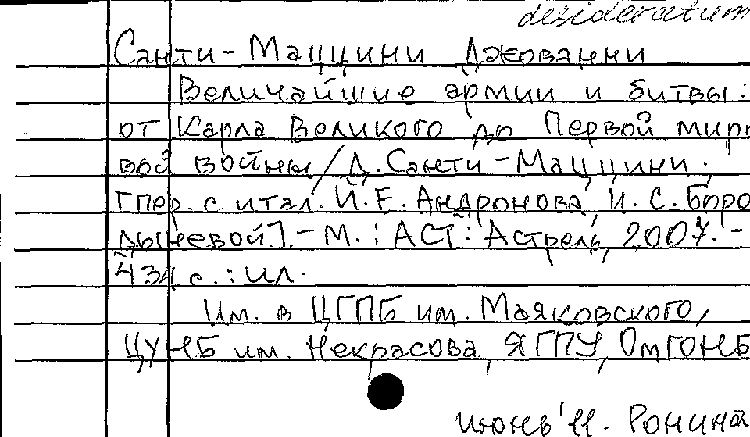 desideratum
Санти-Маццини Джованни
Величайшие армии и битвы:
от Карла Великого до Первой миро
вой войны / Д. Санти-Маццини;
[пер. с итал. И. Е. Андронова, И. С. Боро
дычевой]. - М.: АСТ: Астрель, 2007. -
434 с.: ил.
Им. в ЦГПБ им. Маяковского,
ЦУНБ им. Некрасова, ЯГПУ, ОмГОНБ
июнь'11. Ронина